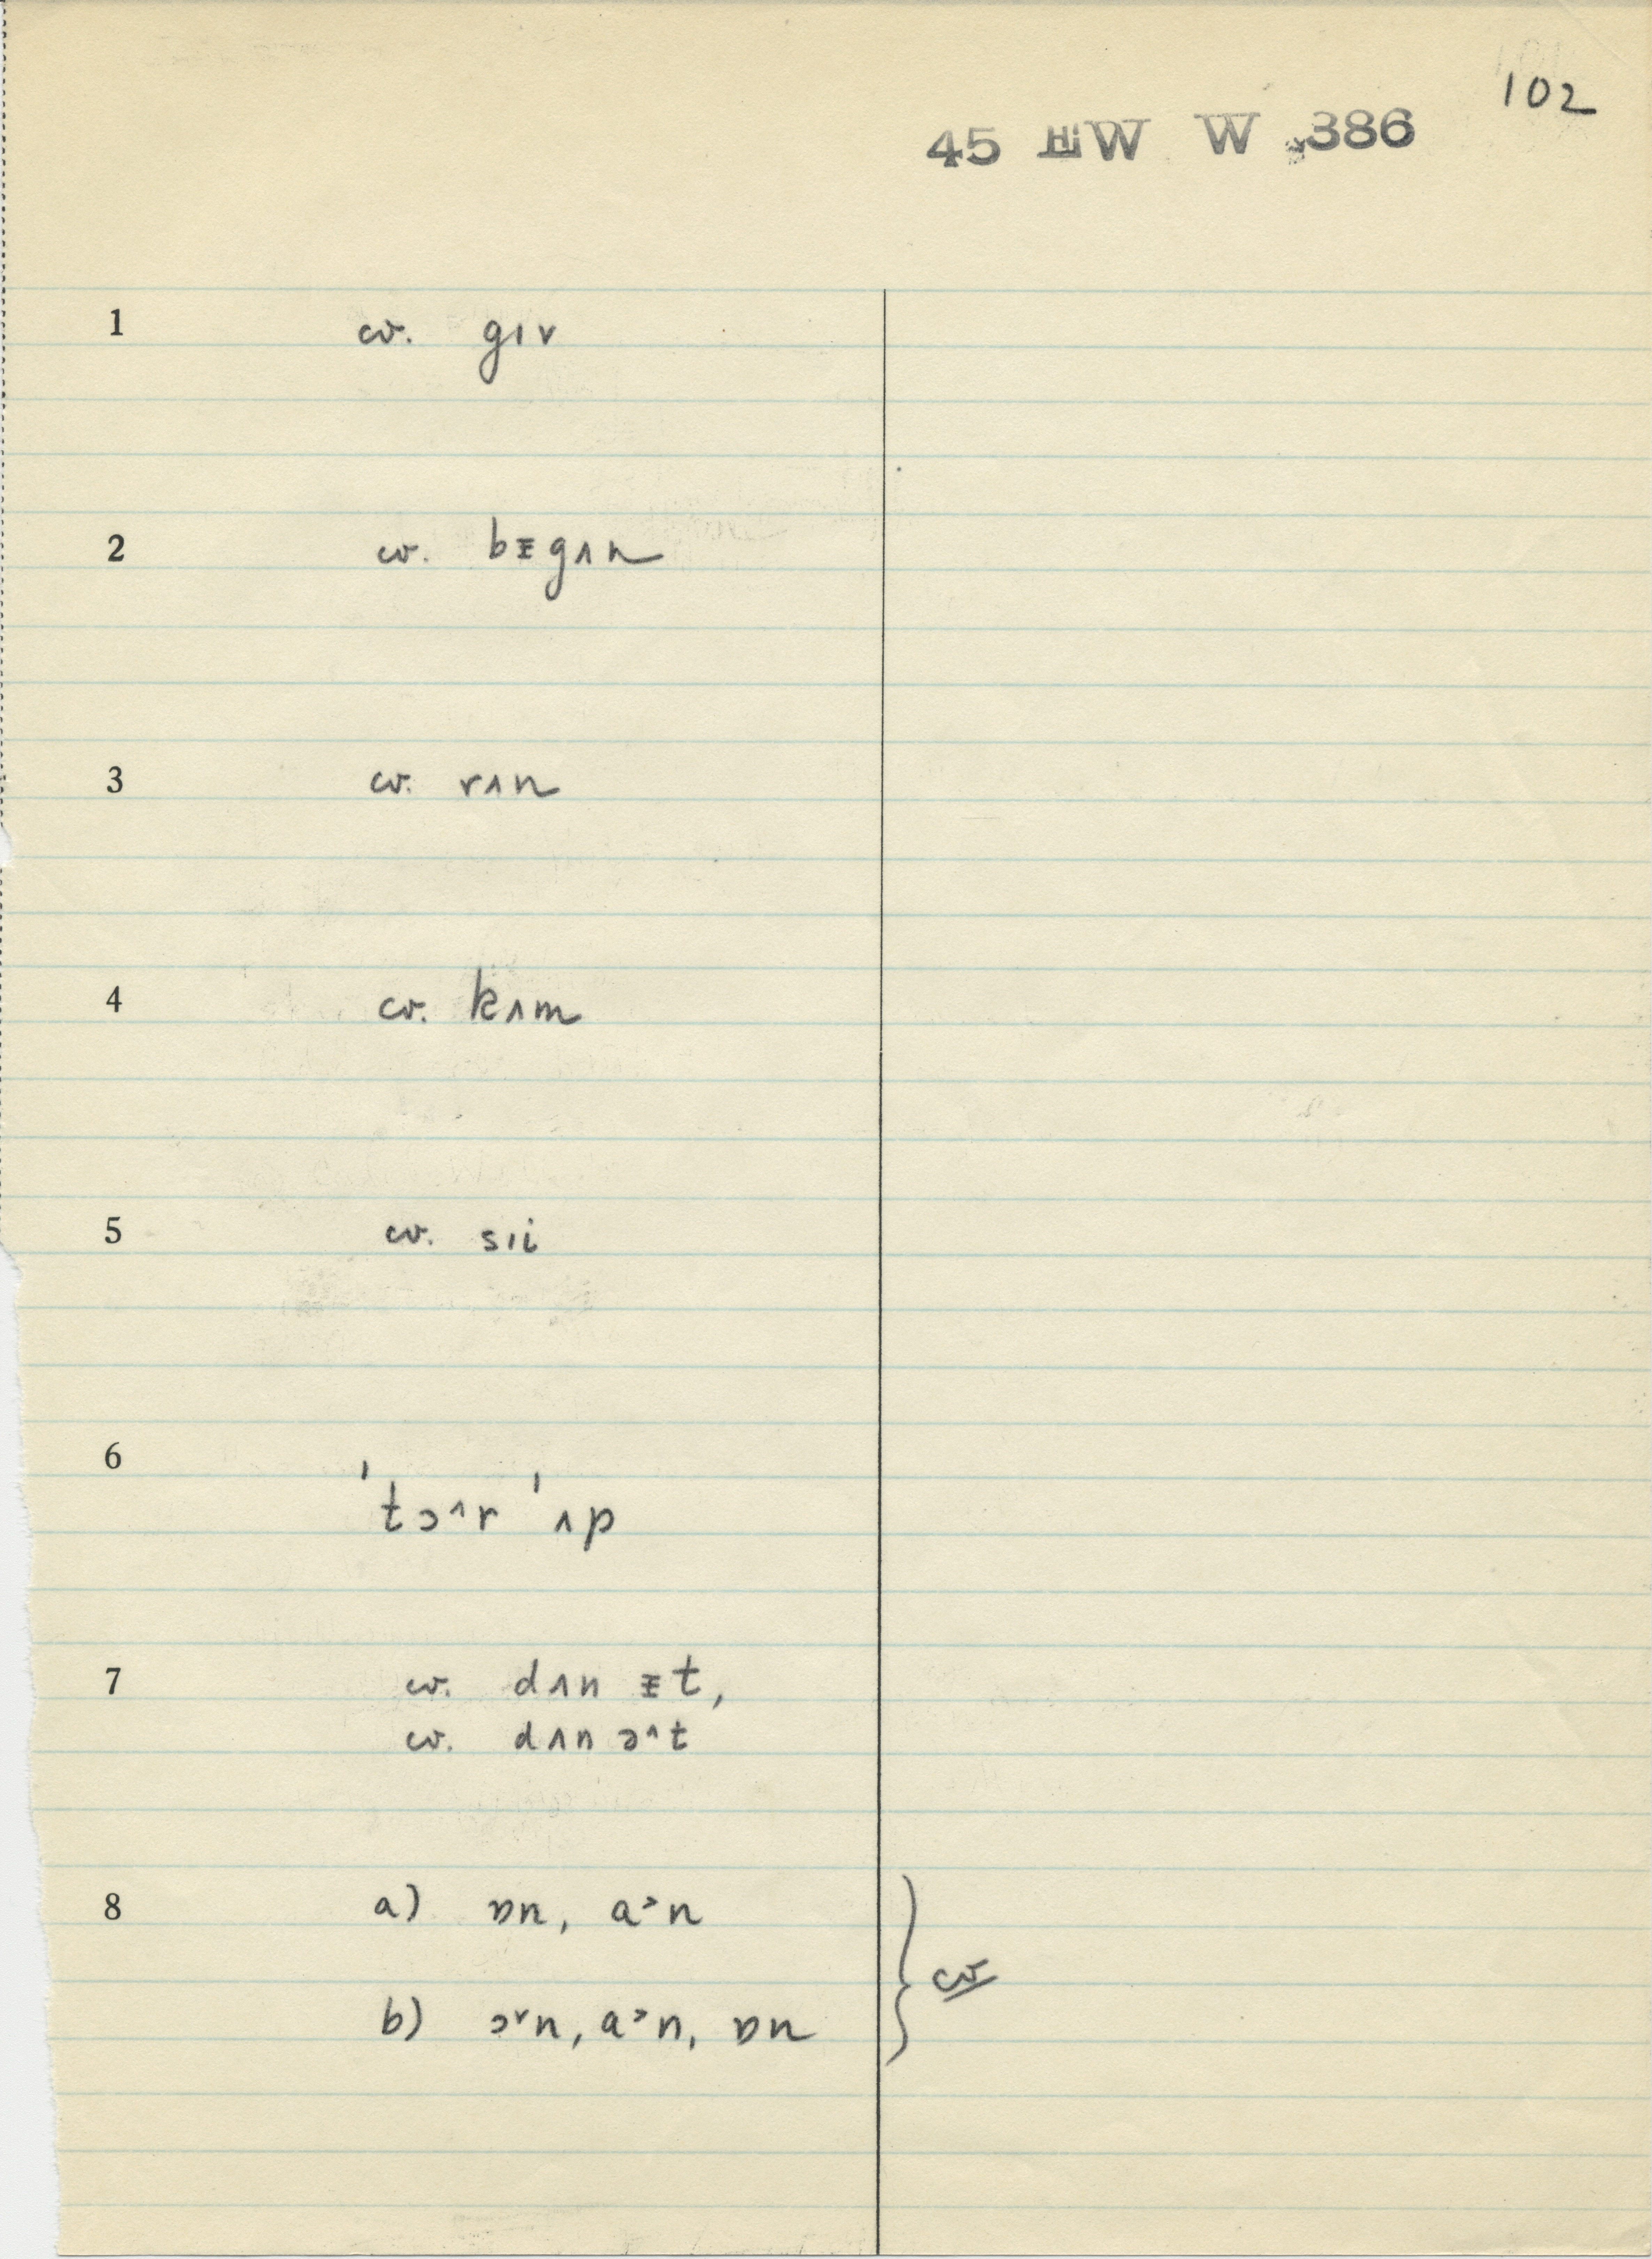 102
45 HW W 386
1 cv. gıv
2 cv. bᵻgʌn
3 cv. rʌn
4 cv. kʌm
5 cv. sıi
6 'tɔ^r 'ʌp
7 cv. dʌn ᵻt,
cv. dʌn ə^t
8 a) ɒn, a>n
b) ɔ˅n, a>n, ɒn } cv